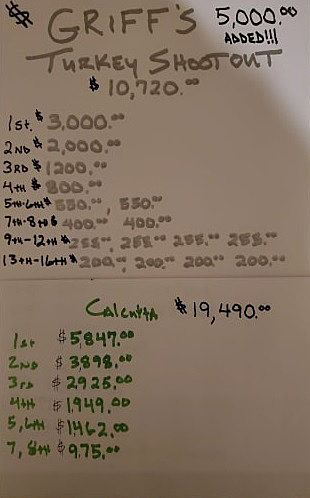 $ GRIFF'S 5,000.00
ADDED!!!
TURKEY SHOOTOUT
$ 10,720.00
1ST. $ 3,000.00
2ND $ 2,000.00
3RD $ 1200.00
4TH $ 800.00
5TH-6TH $ 550.00, 550.00
7TH-8TH $ 400.00 400.00
9TH-12TH $ 255.00, 255.00 255.00 255.00
13TH-16TH $ 200.00, 200.00 200.00 200.00
CALCUTTA $ 19,490.00
1st $ 5,847.00
2nd $ 3,898.00
3rd $ 2925.00
4th $ 1,949.00
5,6th $ 1462.00
7,8th $ 975.00